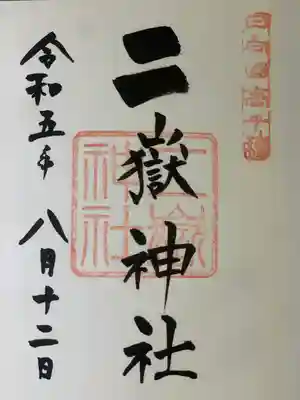 日向国高千穂
二嶽神社
令和五年 八月十二日